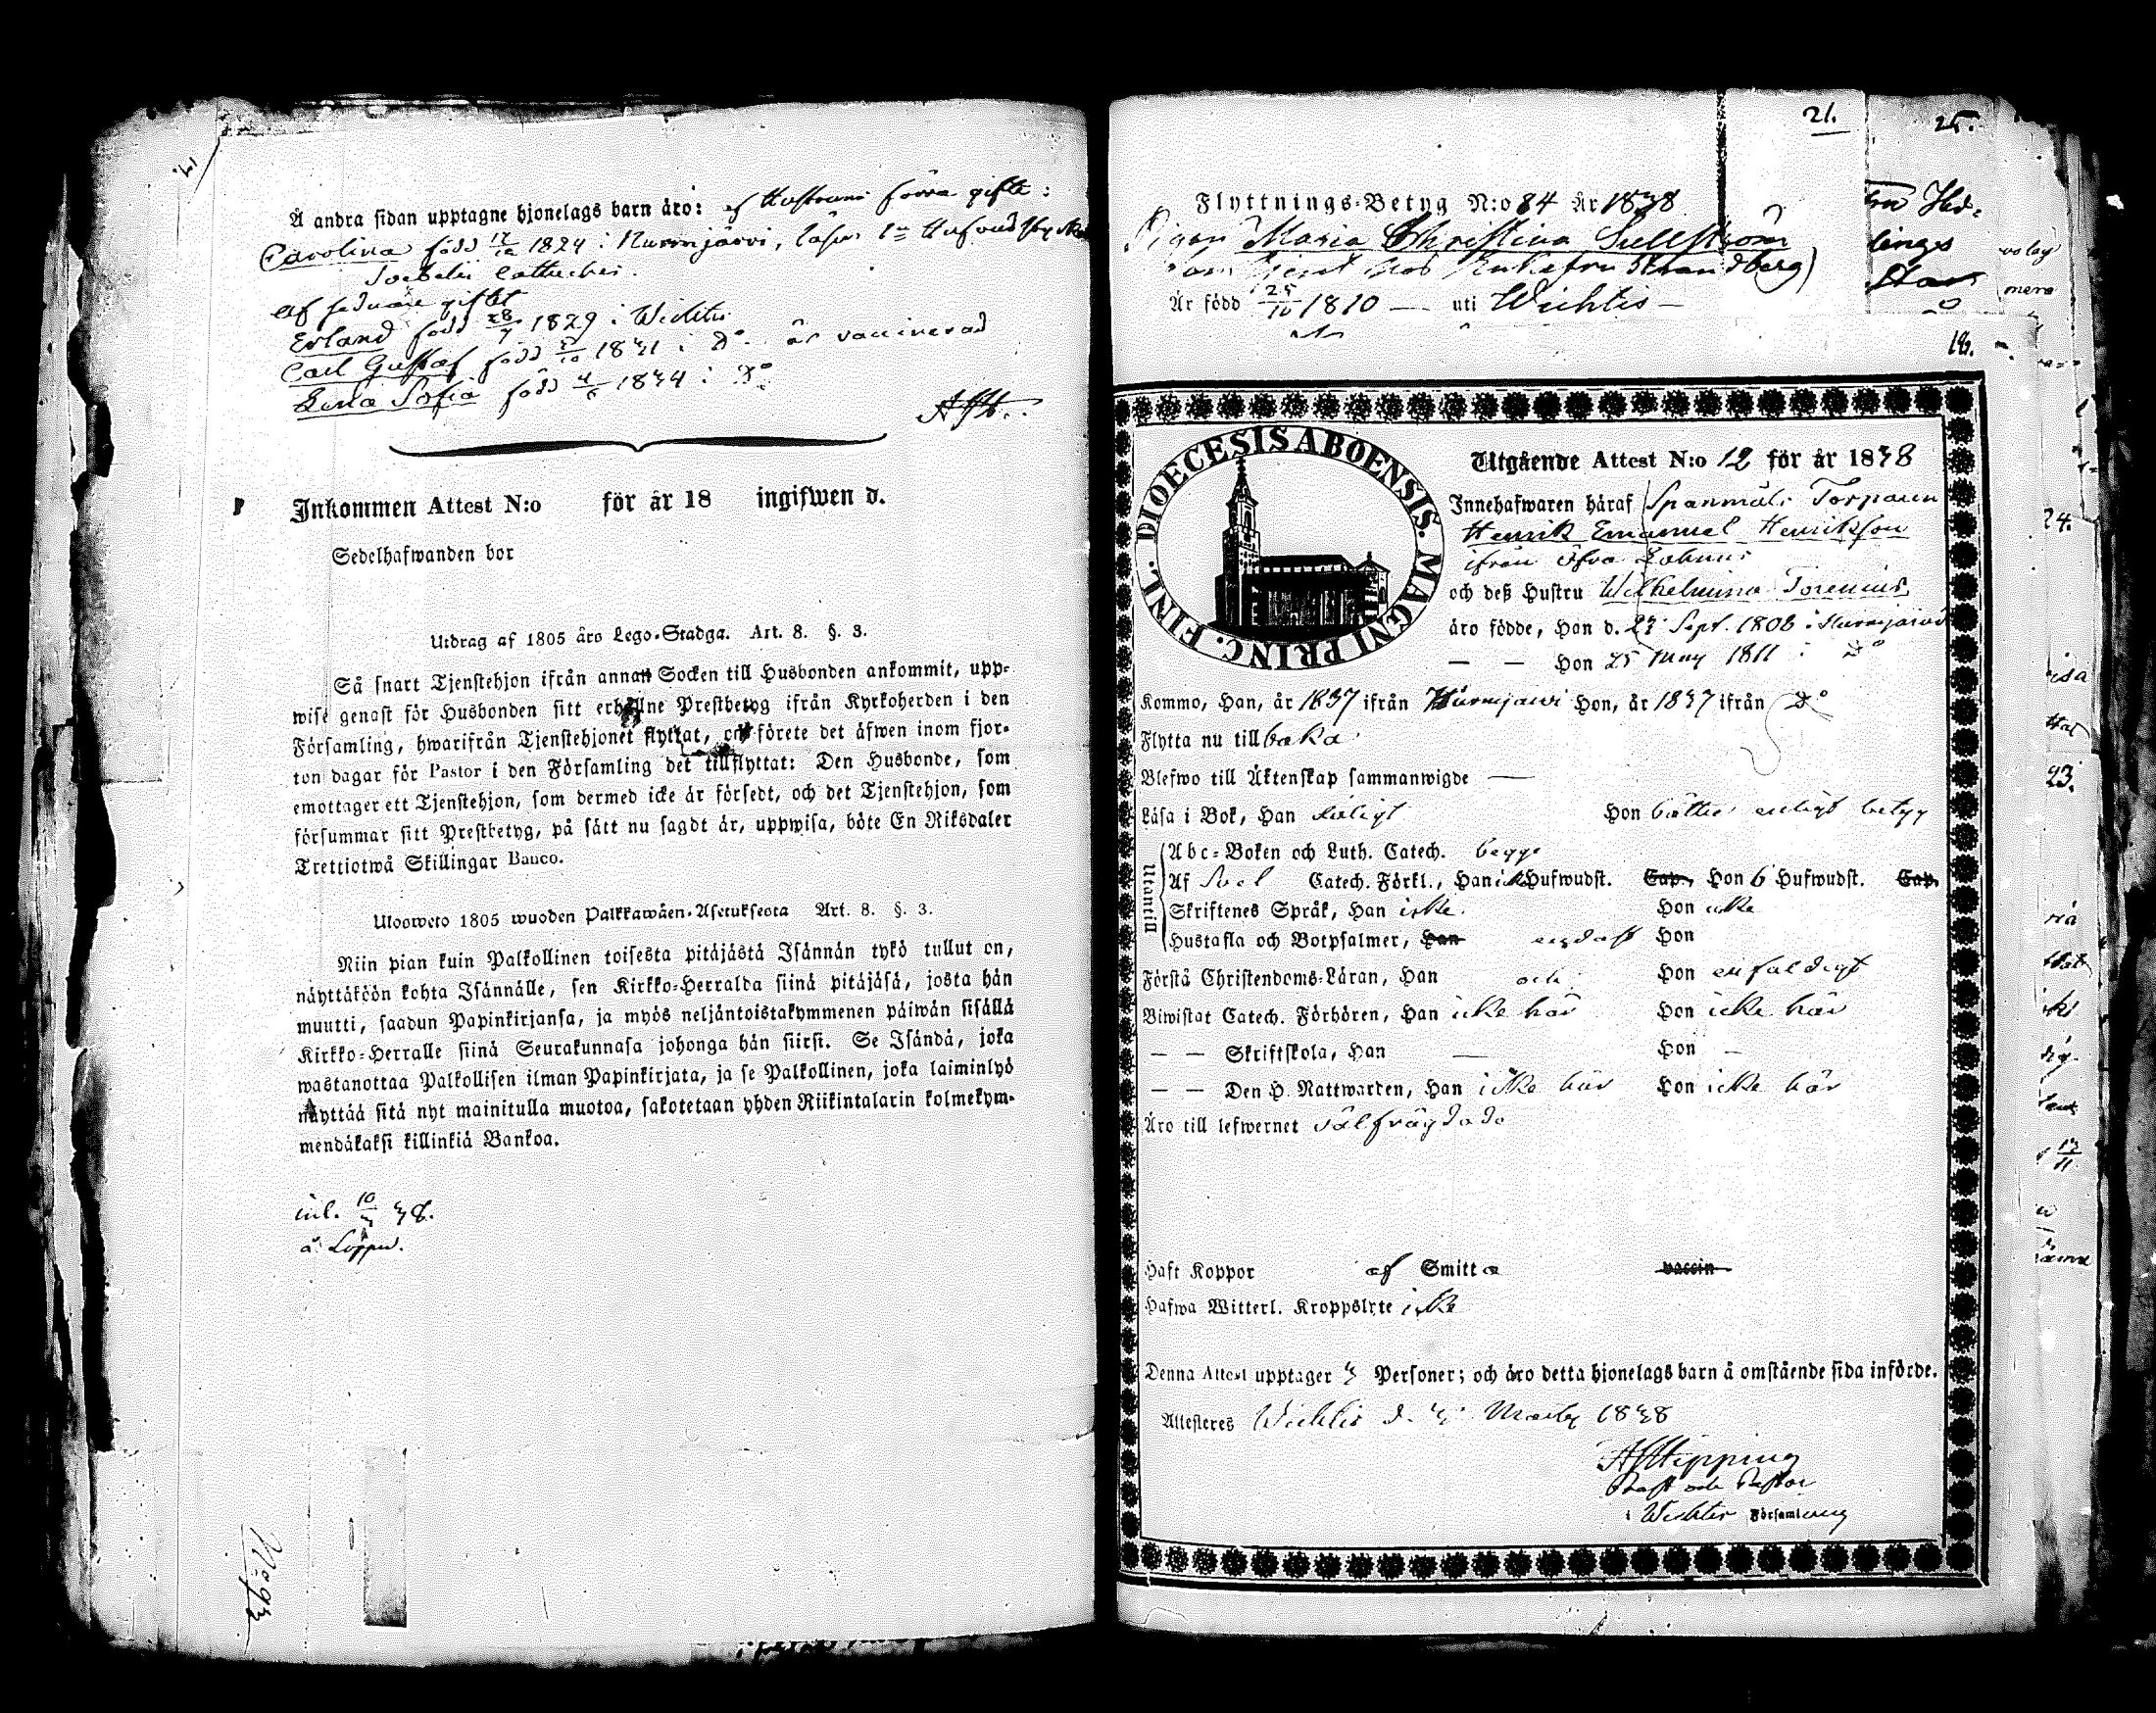 Å andra sidan upptagne hjonelags barn äro: af Hustruns förra gifte:
Carolina född 12/12 1824 i Nurmijärvi, läser 1ta Hufvudstyck
Svebelii Cattechis.
Af sednare giftet
Erland född 28/7 1829 i Wichtis
Carl Gustaf född 1831 i Do. är vaccinerad
Lena Sofia född 4/6 1834 i Do
Inkommen Attest N:o för år 18 ingifwen d.
Sedelhafwanden bor
Utdrag af 1805 års Lego-Stadga. Art. 8. §. 3.
Så snart Tjenstehjon ifrån annan Socken till Husbonden ankommit, upp-
wise genast för Husbonden sitt erhållne Prestbetyg ifrån Kyrkoherden i den
Församling, hwarifrån Tjenstehjonet flyttat, och förete det äfwen inom fjor-
ton dagar för Pastor i den Församling det tillflyttat: Den Husbonde, som
emottager ett Tjenstehjon, som dermed icke är försedt, och det Tjenstehjon, som
försummar sitt Prestbetyg, på sätt nu sagdt är, uppwisa, böte En Riksdaler
Trettiotwå Skillingar Banco.
Ulosweto 1805 wuoden Palkkawäen-Asetuksesta Art. 8. §. 3.
Niin pian kuin Palkollinen toisesta pitäjästä Isännän tykö tullut on,
näyttäköön kohta Isännälle, sen Kirkko-Herralda siinä pitäjäsä, josta hän
muutti, saadun Papinkirjansa, ja myös neljäntoistakymmenen päiwän sisällä
Kirkko-Herralle siinä Seurakunnasa johonga hän siirsi. Se Isändä, joka
wastanottaa Palkollisen ilman Papinkirjata, ja se Palkollinen, joka laiminlyö
näyttää sitä nyt mainitulla muotoa, sakotetaan yhden Riikintalarin kolmekym-
mendäkaksi killinkiä Bankoa.
inl. 10/3 38.
å Loppu.
No 93
21.
25.
Flyttnings-Betyg N:o 84 År 1838
Pigan Maria Christina Sellström
som tjent hos Enkefru Strandberg)
Är född 25/10 1810 — uti Wichtis —
16.
DIOECESIS ABOENSIS. MAGNI PRINC. FINL.
Utgående Attest N:o 12 för år 1838
Innehafwaren häraf Spanmåls Torparen
Henrik Emanuel Henriksson
ifrån Öfra
och deß Hustru Wilhelmina Torenius
äro födde, Han d. 27 Sept. 1808 i Nurmijärvi
— — Hon 25 May 1811 i Do
Kommo, Han, år 1837 ifrån Nurmijärvi Hon, år 1837 ifrån Do
Flytta nu till baka
Blefwo till Äktenskap sammanwigde —
Läsa i Bok, Han Hon bättre enligt betyg
Utantill
Abc-Boken och Luth. Catech. begge
Af Svel Catech. Förkl., Han icke Hufwudst. Cap. Hon 6 Hufwudst. Cap.
Skriftenes Språk, Han icke Hon icke
Hustafla och Botpsalmer, Han endast Hon
Förstå Christendoms-Läran, Han och Hon enfaldigt
Biwistat Catech. Förhören, Han icke här Hon icke här
— — Skriftskola, Han — Hon —
— — Den H. Nattwarden, Han icke här Hon icke här
Äro till lefwernet välfrägdade
Haft Koppor af Smitta vaccin
Hafwa Witterl. Kroppslyte icke
Denna Attest upptager 3 Personer; och äro detta hjonelags barn å omstående sida införde.
Attesteras Wichtis d. 3 Martz 1838
AJHipping
Prost och Pastor
i Wichtis Församling
24.
23.